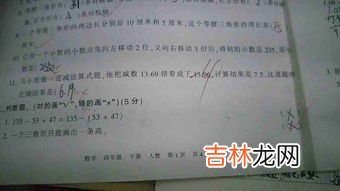 9. 一个等腰三角形的两边长分别是 10 厘米和 5 厘米，这个等腰三角形的周长是
10. 把一个小数的小数点先向左移动 2 位，又向右移动 3 位后，得到的小数是 235，原小
数是( 23.5
11. 马小虎做一道减法算式题，他把减数 13.69 错看成了 ，计算结果是 7.5，这道题的
正确结果是( 6.19
二、判断题。(对的画“√”，错的画“×”)(5 分)
1. 135－53＋47＝135－(53＋47)
2. 一个三角形只能画出一条高。
数学 四年级 下册 人教 第 1 页 共 4
吉林龙网